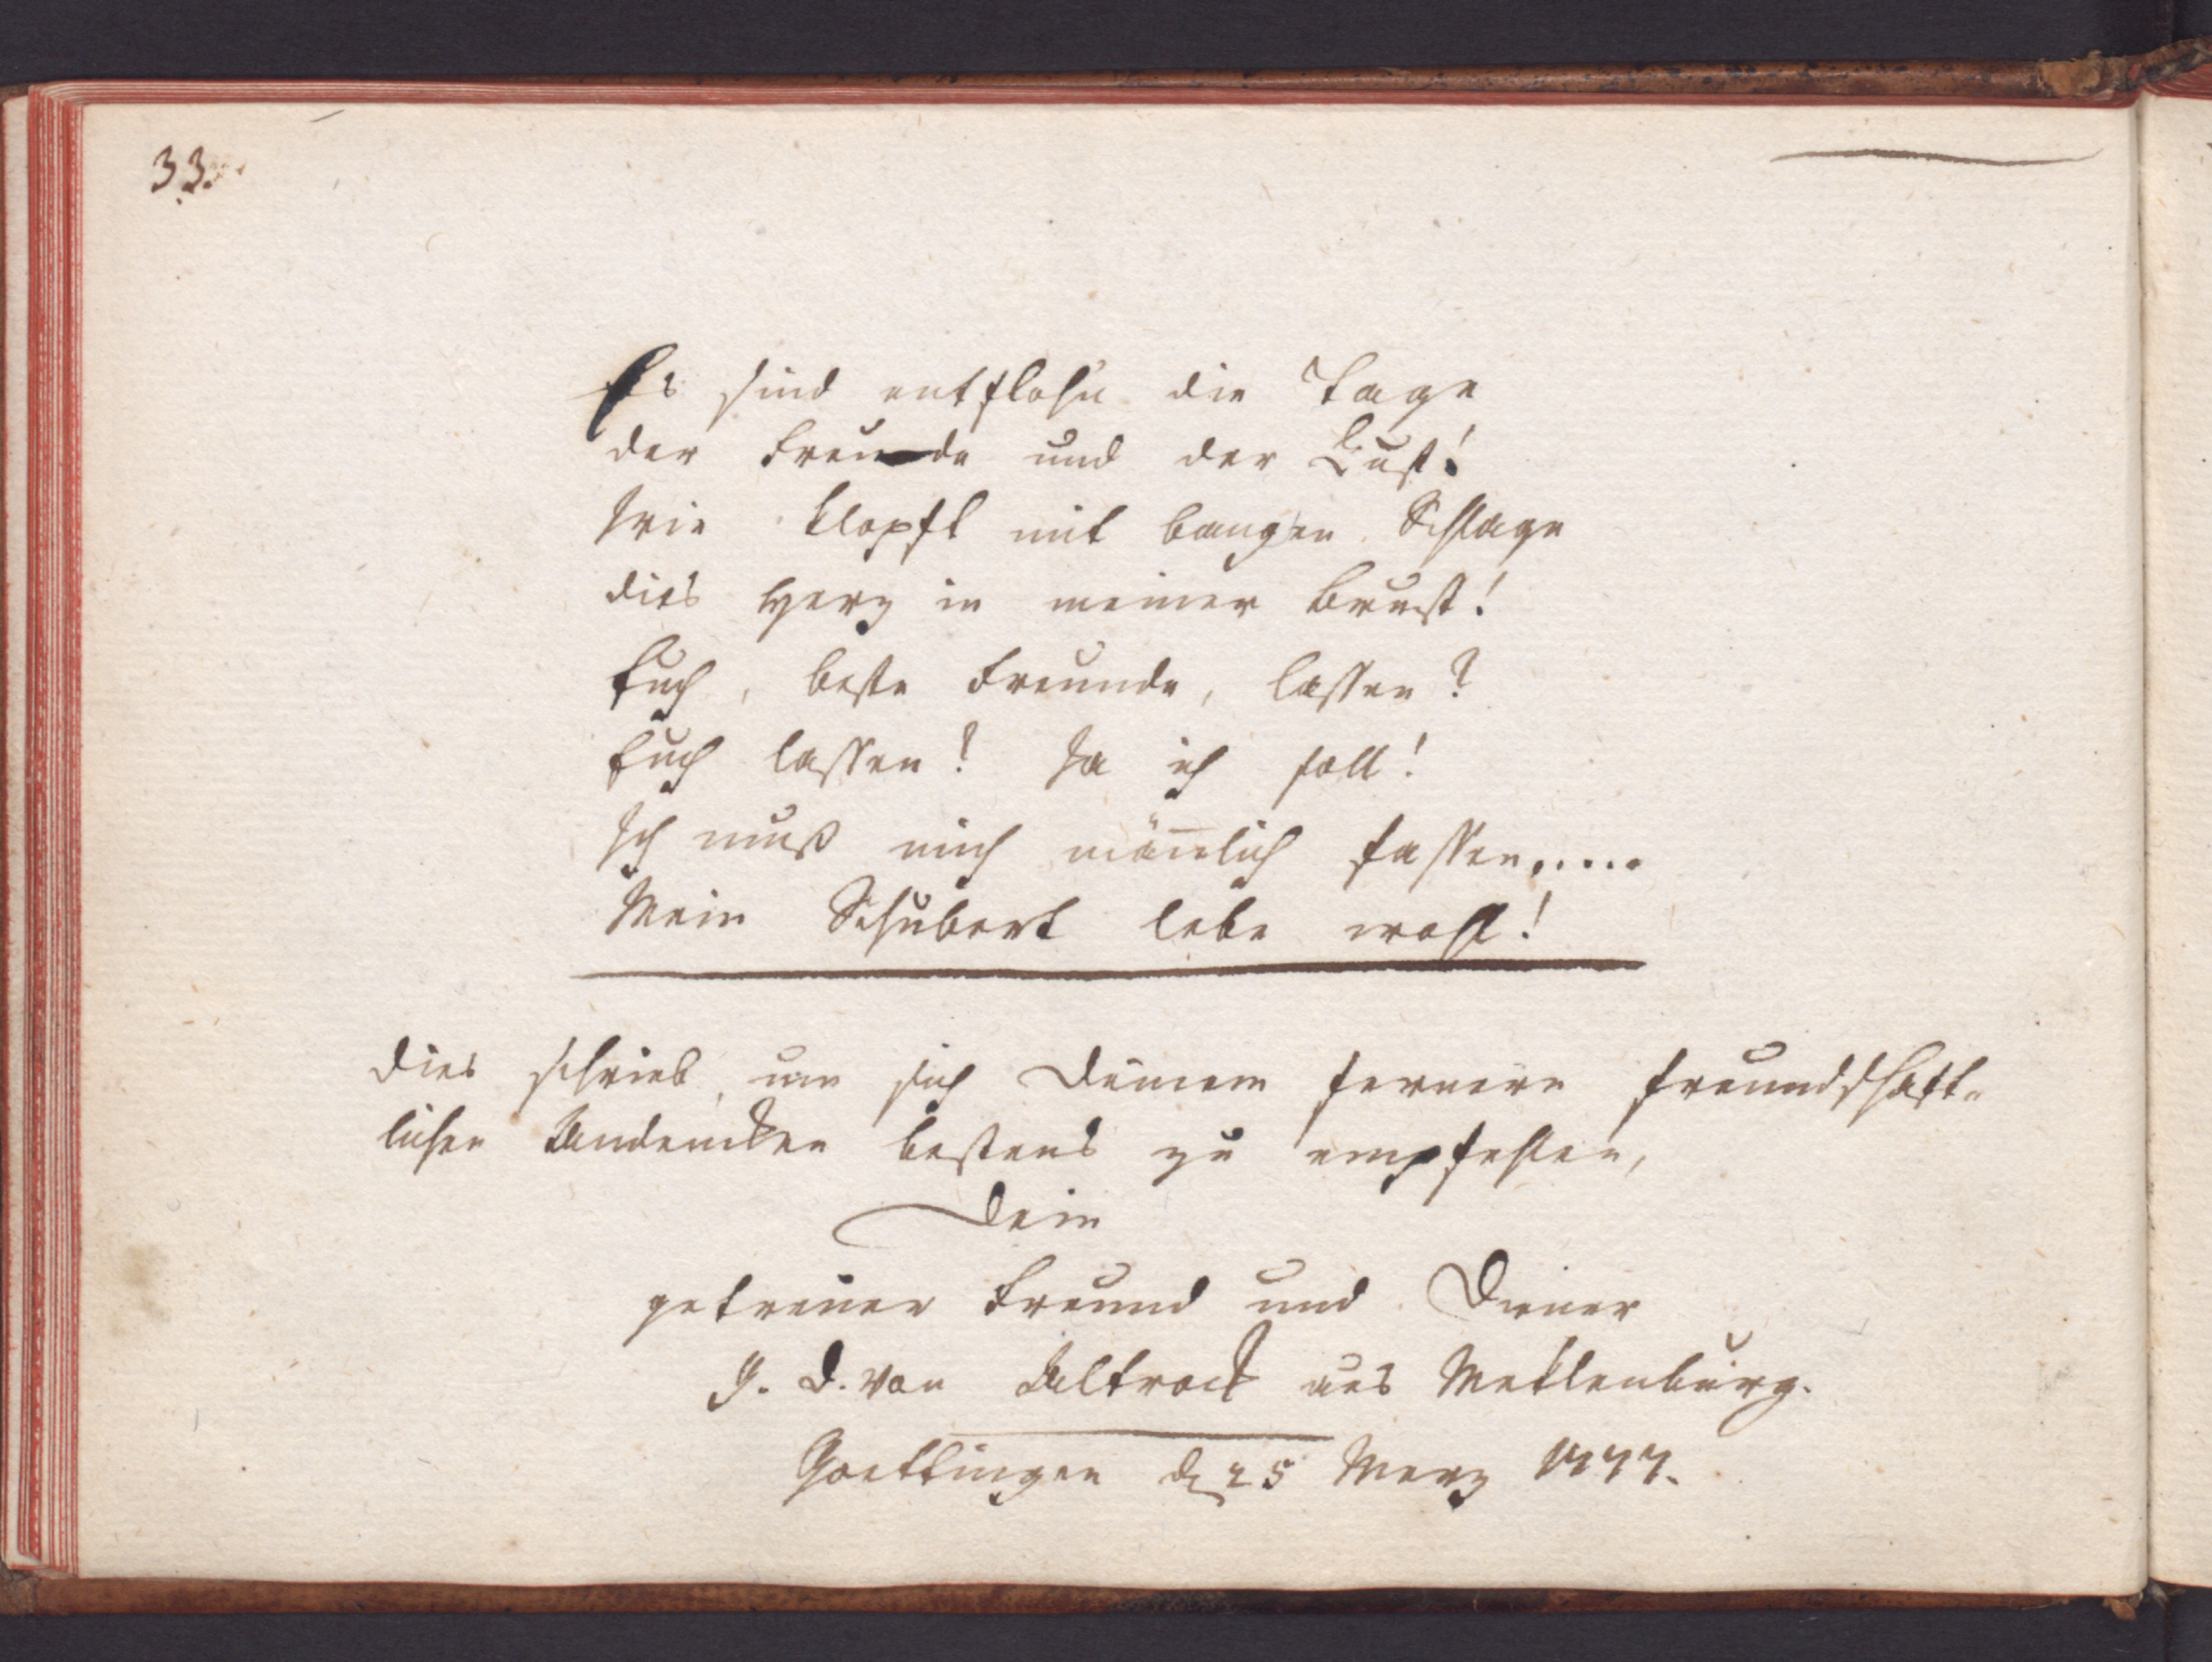 33.
Es sind entflohn die Tage
der Freude und der Lust!
Wie klopft mit bangen Schlage
dies Herz in meiner Brust!
Euch, beste Freunde, lassen?
Euch lassen? Ja ich soll!
Ich muß mich mäñlich fassen.....
Mein Schubert lebe wohl!
Dies schrieb, um sich Deinem fernern freundschaft-
lichen Andencken bestens zu empfehlen,
Dein
getreuer Freund und Diener
J. D. von Altrock aus Meklenburg.
Goettingen d 25 Merz 1777.